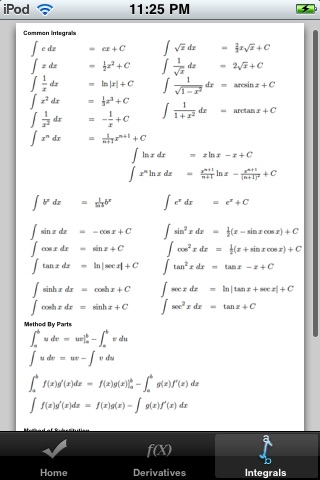 iPod 11:25 PM
Common Integrals
∫ c dx = cx + C ∫ √x dx = ⅔x√x + C
∫ x dx = ½x² + C ∫ 1/√x dx = 2√x + C
∫ 1/x dx = ln |x| + C ∫ 1/√(1−x²) dx = arcsin x + C
∫ x² dx = ⅓x³ + C ∫ 1/(1+x²) dx = arctan x + C
∫ 1/x² dx = −1/x + C
∫ xⁿ dx = 1/(n+1) xⁿ⁺¹ + C
∫ ln x dx = x ln x − x + C
∫ xⁿ ln x dx = xⁿ⁺¹/(n+1) ln x − xⁿ⁺¹/(n+1)² + C
∫ bˣ dx = 1/(ln b) bˣ ∫ eˣ dx = eˣ + C
∫ sin x dx = − cos x + C ∫ sin² x dx = ½(x − sin x cos x) + C
∫ cos x dx = sin x + C ∫ cos² x dx = ½(x + sin x cos x) + C
∫ tan x dx = ln | sec x| + C ∫ tan² x dx = tan x − x + C
∫ sinh x dx = cosh x + C ∫ sec x dx = ln | tan x + sec x| + C
∫ cosh x dx = sinh x + C ∫ sec² x dx = tan x + C
Method By Parts
∫ₐᵇ u dv = uv|ₐᵇ − ∫ₐᵇ v du
∫ u dv = uv − ∫ v du
∫ₐᵇ f(x)g′(x)dx = f(x)g(x)|ₐᵇ − ∫ₐᵇ g(x)f′(x) dx
∫ f(x)g′(x)dx = f(x)g(x) − ∫ g(x)f′(x) dx
Method of Substitution
f(X) a b
Home Derivatives Integrals